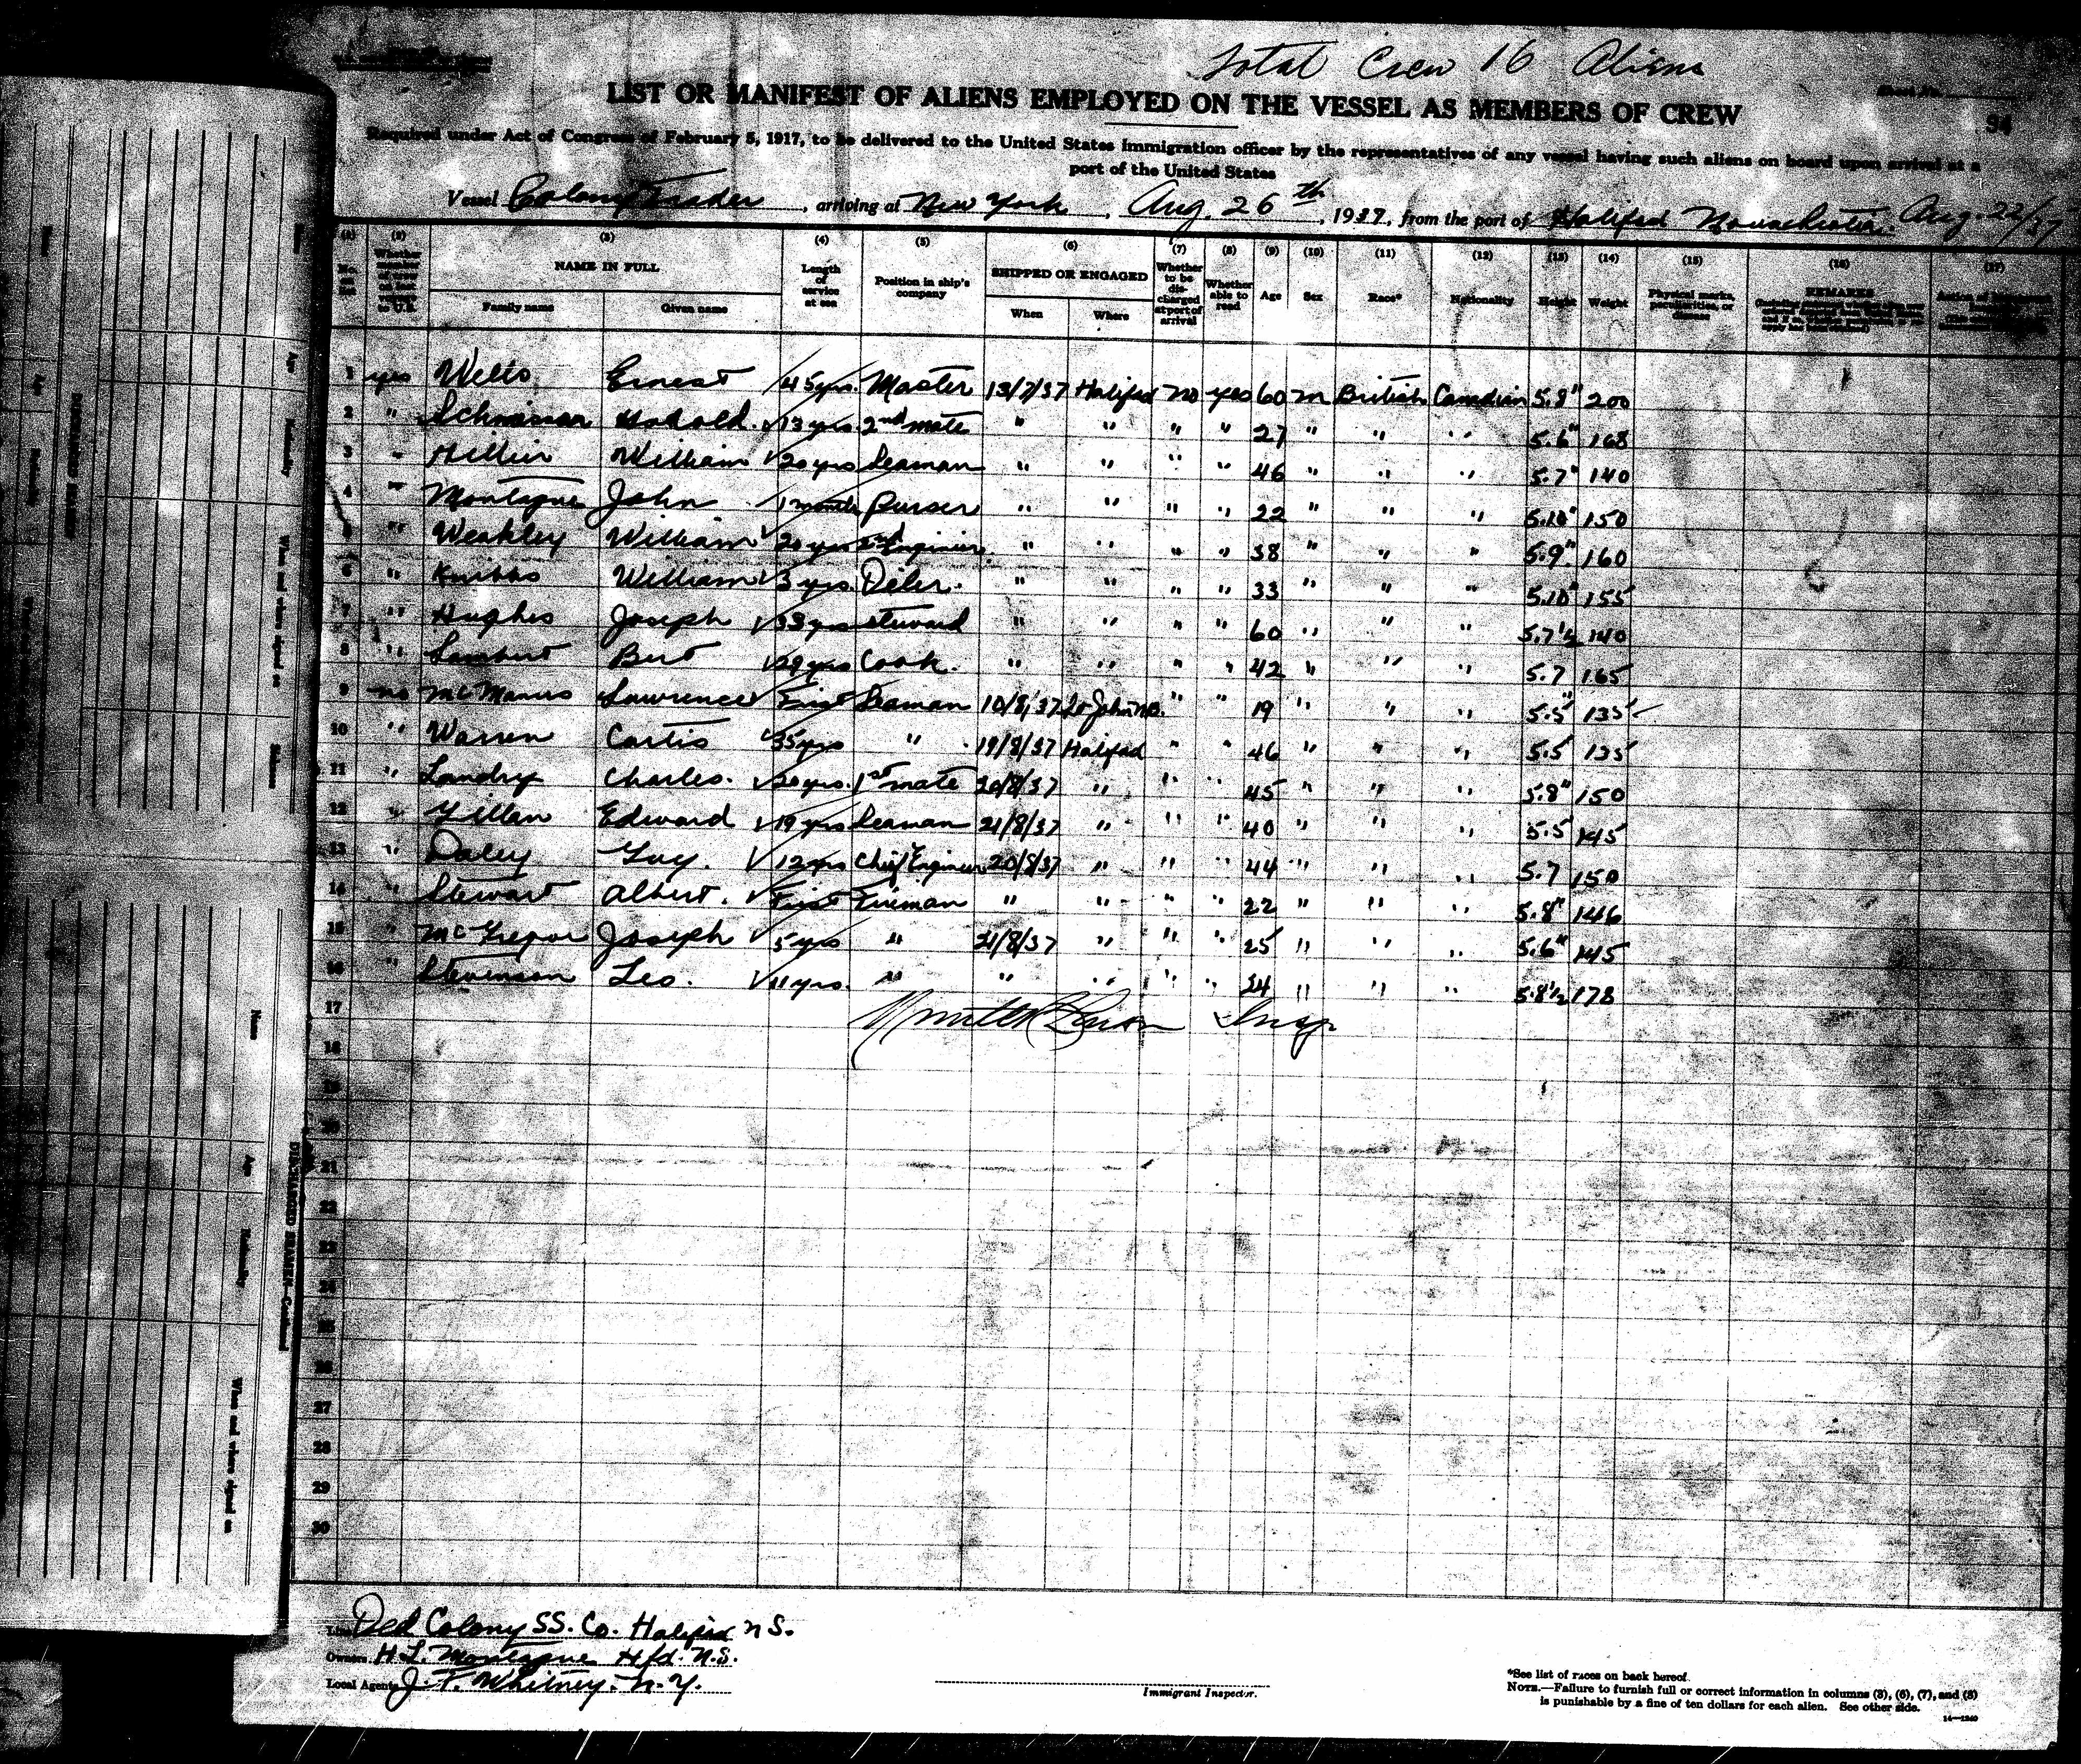 Total Crew 16 Aliens
LIST OR MANIFEST OF ALIENS EMPLOYED ON THE VESSEL AS MEMBERS OF CREW
Sheet No.
94
Required under Act of Congress of February 5, 1917, to be delivered to the United States Immigration officer by the representatives of any vessel having such aliens on board upon arrival at a
port of the United States
Vessel Colony Trader, arriving at New York, Aug. 26th, 1937, from the port of Halifax Novascotia. Aug. 22/37
(1) (2) (3) (4) (5) (6) (7) (8) (9) (10) (11) (12) (13) (14) (15) (16) (17)
No. on list NAME IN FULL Family name Given name Length of service at sea Position in ship's company SHIPPED OR ENGAGED When Where Whether to be discharged at port of arrival Whether able to read Age Sex Race* Nationality Height Weight Physical marks, peculiarities, or disease REMARKS
1 yes Ernest 45 yrs. Master 13/7/37 Halifax no yes 60 m British Canadian 5.8" 200
2 " Harold 13 yrs. 2nd mate " " " " 27 " " " 5.6" 168
3 " William 20 yrs Seaman " " " " 46 " " " 5.7" 140
4 " Montague John 1 month Purser " " " " 22 " " " 5.10" 150
5 " Weakley William 20 yrs 2nd Engineer " " " " 38 " " " 5.9" 160
6 " Knibbs William 3 yrs. Oiler. " " " " 33 " " " 5.10" 155
7 " Hughes Joseph 33 yrs steward " " " " 60 " " " 5.7½ 140
8 " Lambert Bert 29 yrs Cook. " " " " 42 " " " 5.7 165
9 no McManus Lawrence First Seaman 10/8/37 St John NB. " " 19 " " " 5.5" 135
10 " Warren Curtis 35 yrs " 19/8/37 Halifax " " 46 " " " 5.5 135
11 " Landry Charles. 20 yrs. 1st mate 20/8/37 " " " 45 " " " 5.8" 150
12 " Edward 19 yrs Seaman 21/8/37 " " " 40 " " " 5.5 145
13 " Daley Guy. 12 yrs Chief Engineer 20/8/37 " " " 44 " " " 5.7 150
14 " Stewart Albert. First Fireman " " " " 22 " " " 5.8" 146
15 " McGregor Joseph 5 yrs " 21/8/37 " " " 25 " " " 5.6" 145
16 " Stevenson Leo. 11 yrs. " " " " " 24 " " " 5.8½ 178
17 Insp
18
19
20
21
22
23
24
25
26
27
28
29
30
DISCHARGED SEAMEN—Continued
Name
Age
Nationality
When and where signed on
Line Old Colony SS. Co. Halifax N S.
Owners H. L. Montague Hfd. N.S.
Local Agents J. F. Whitney. N. Y.
Immigrant Inspector.
*See list of races on back hereof.
NOTE.—Failure to furnish full or correct information in columns (3), (6), (7), and (8)
is punishable by a fine of ten dollars for each alien. See other side.
14—1240